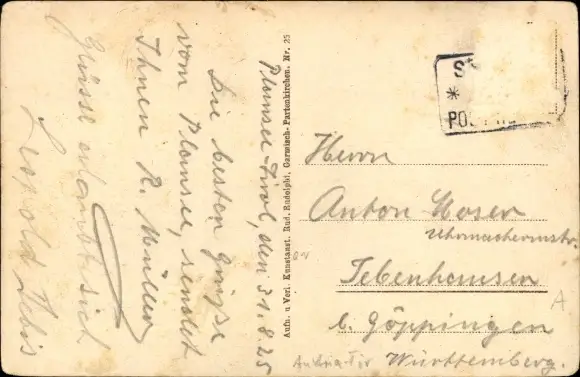 Plansee-Tirol, den 31.8.25
Die besten Grüße
vom Plansee, sendet
Ihnen R. Müller
Grüsse erlaubt sich
Leopold
Aufn. u Verl. Kunstanst. Rud. Rudolphi, Garmisch-Partenkirchen. Nr. 25
St
*
PO
Herrn
Anton Moser
Uhrmachermstr.
Jebenhausen
b. Göppingen
Württemberg.
A